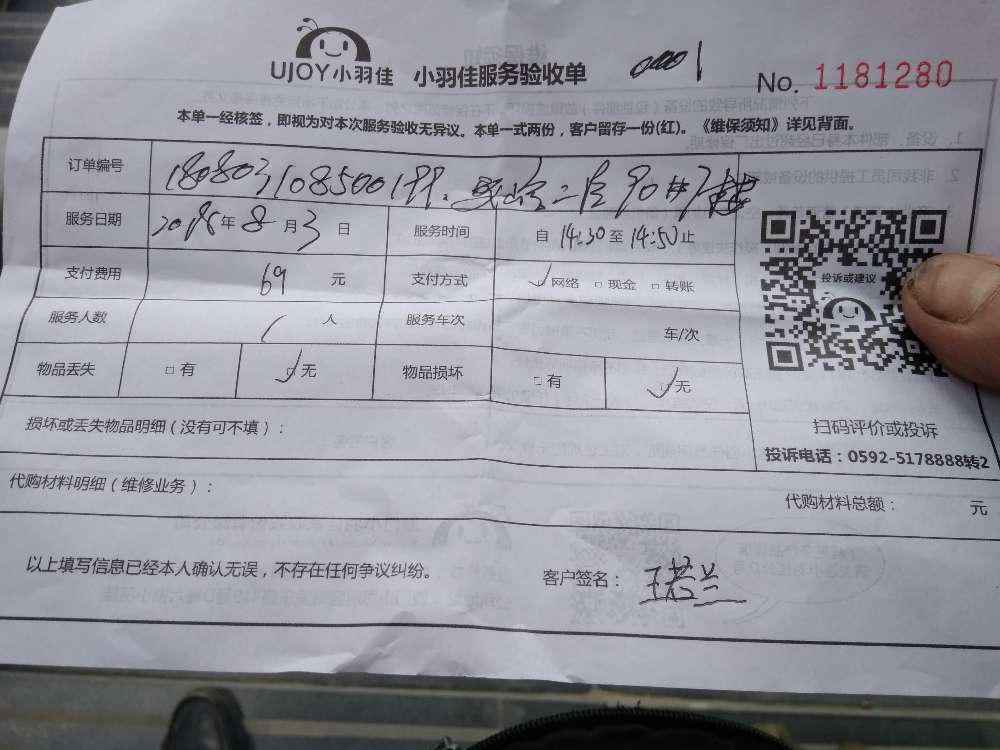 UJOY小羽佳 小羽佳服务验收单 0001 No. 1181280
本单一经核签，即视为对本次服务验收无异议。本单一式两份，客户留存一份(红)。《维保须知》详见背面。
订单编号 180803108500199.
服务日期 2018年8月3日 服务时间 自14:30至14:50止
投诉或建议
支付费用 69 元 支付方式 网络 现金 转账
服务人数 1 人 服务车次 车/次
物品丢失 有 无 物品损坏 有 无
扫码评价或投诉
损坏或丢失物品明细（没有可不填）：
投诉电话：0592-5178888转2
代购材料明细（维修业务）： 代购材料总额： 元
以上填写信息已经本人确认无误，不存在任何争议纠纷。 客户签名： 王若兰